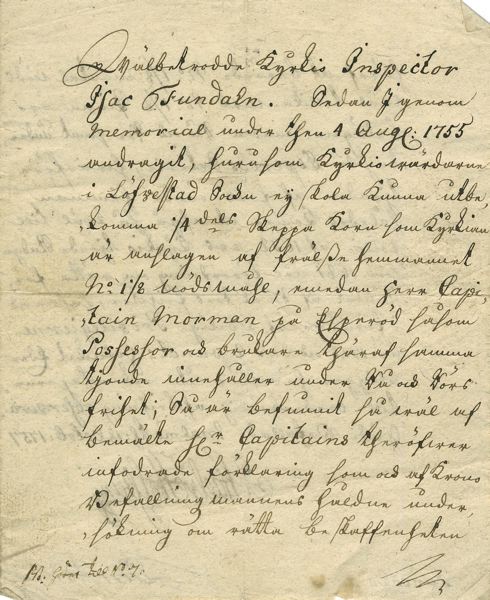 Wälbetrodde Kyrkio Inspector
Isac Fundahn. Sedan I genom
Memorial under then 4 Aug: 1755
andragit, huruhsom Kyrkiowärdarne
i Löfvestad Sockn ej skola kunna utbe,
,komma 1/4 dels Skeppa Korn som Kyrkian
är anslagen af frälsse hemmannet
No 1/8 Nödsmahl, emedan Herr Capi,
,tain Morman på Esperöd såsom
Possessor och brukare theraf samma
tjonde innehåller under Sä och Rörs
frihet; Så är befunnit så wäl af
bemälte Hr Capitains theröfwer
infodrade förklaring som och af Krono
Befallningsmannens hållne under,
,sökning om rätta beskaffenheten